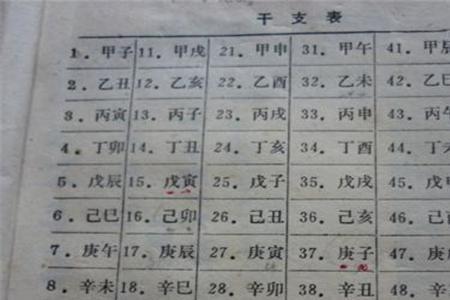 干支表
1．甲子 11．甲戌 21．甲申 31．甲午 41．甲辰
2．乙丑 12．乙亥 22．乙酉 32．乙未 42．乙巳
3．丙寅 13．丙子 23．丙戌 33．丙申 43．丙午
4．丁卯 14．丁丑 24．丁亥 34．丁酉 44．丁未
5．戊辰 15．戊寅 25．戊子 35．戊戌 45．戊申
6．己巳 16．己卯 26．己丑 36．己亥 46．己
7．庚午 17．庚辰 27．庚寅 37．庚子 47．庚
8．辛未 18．辛巳 28．辛卯 38．辛丑 48．辛